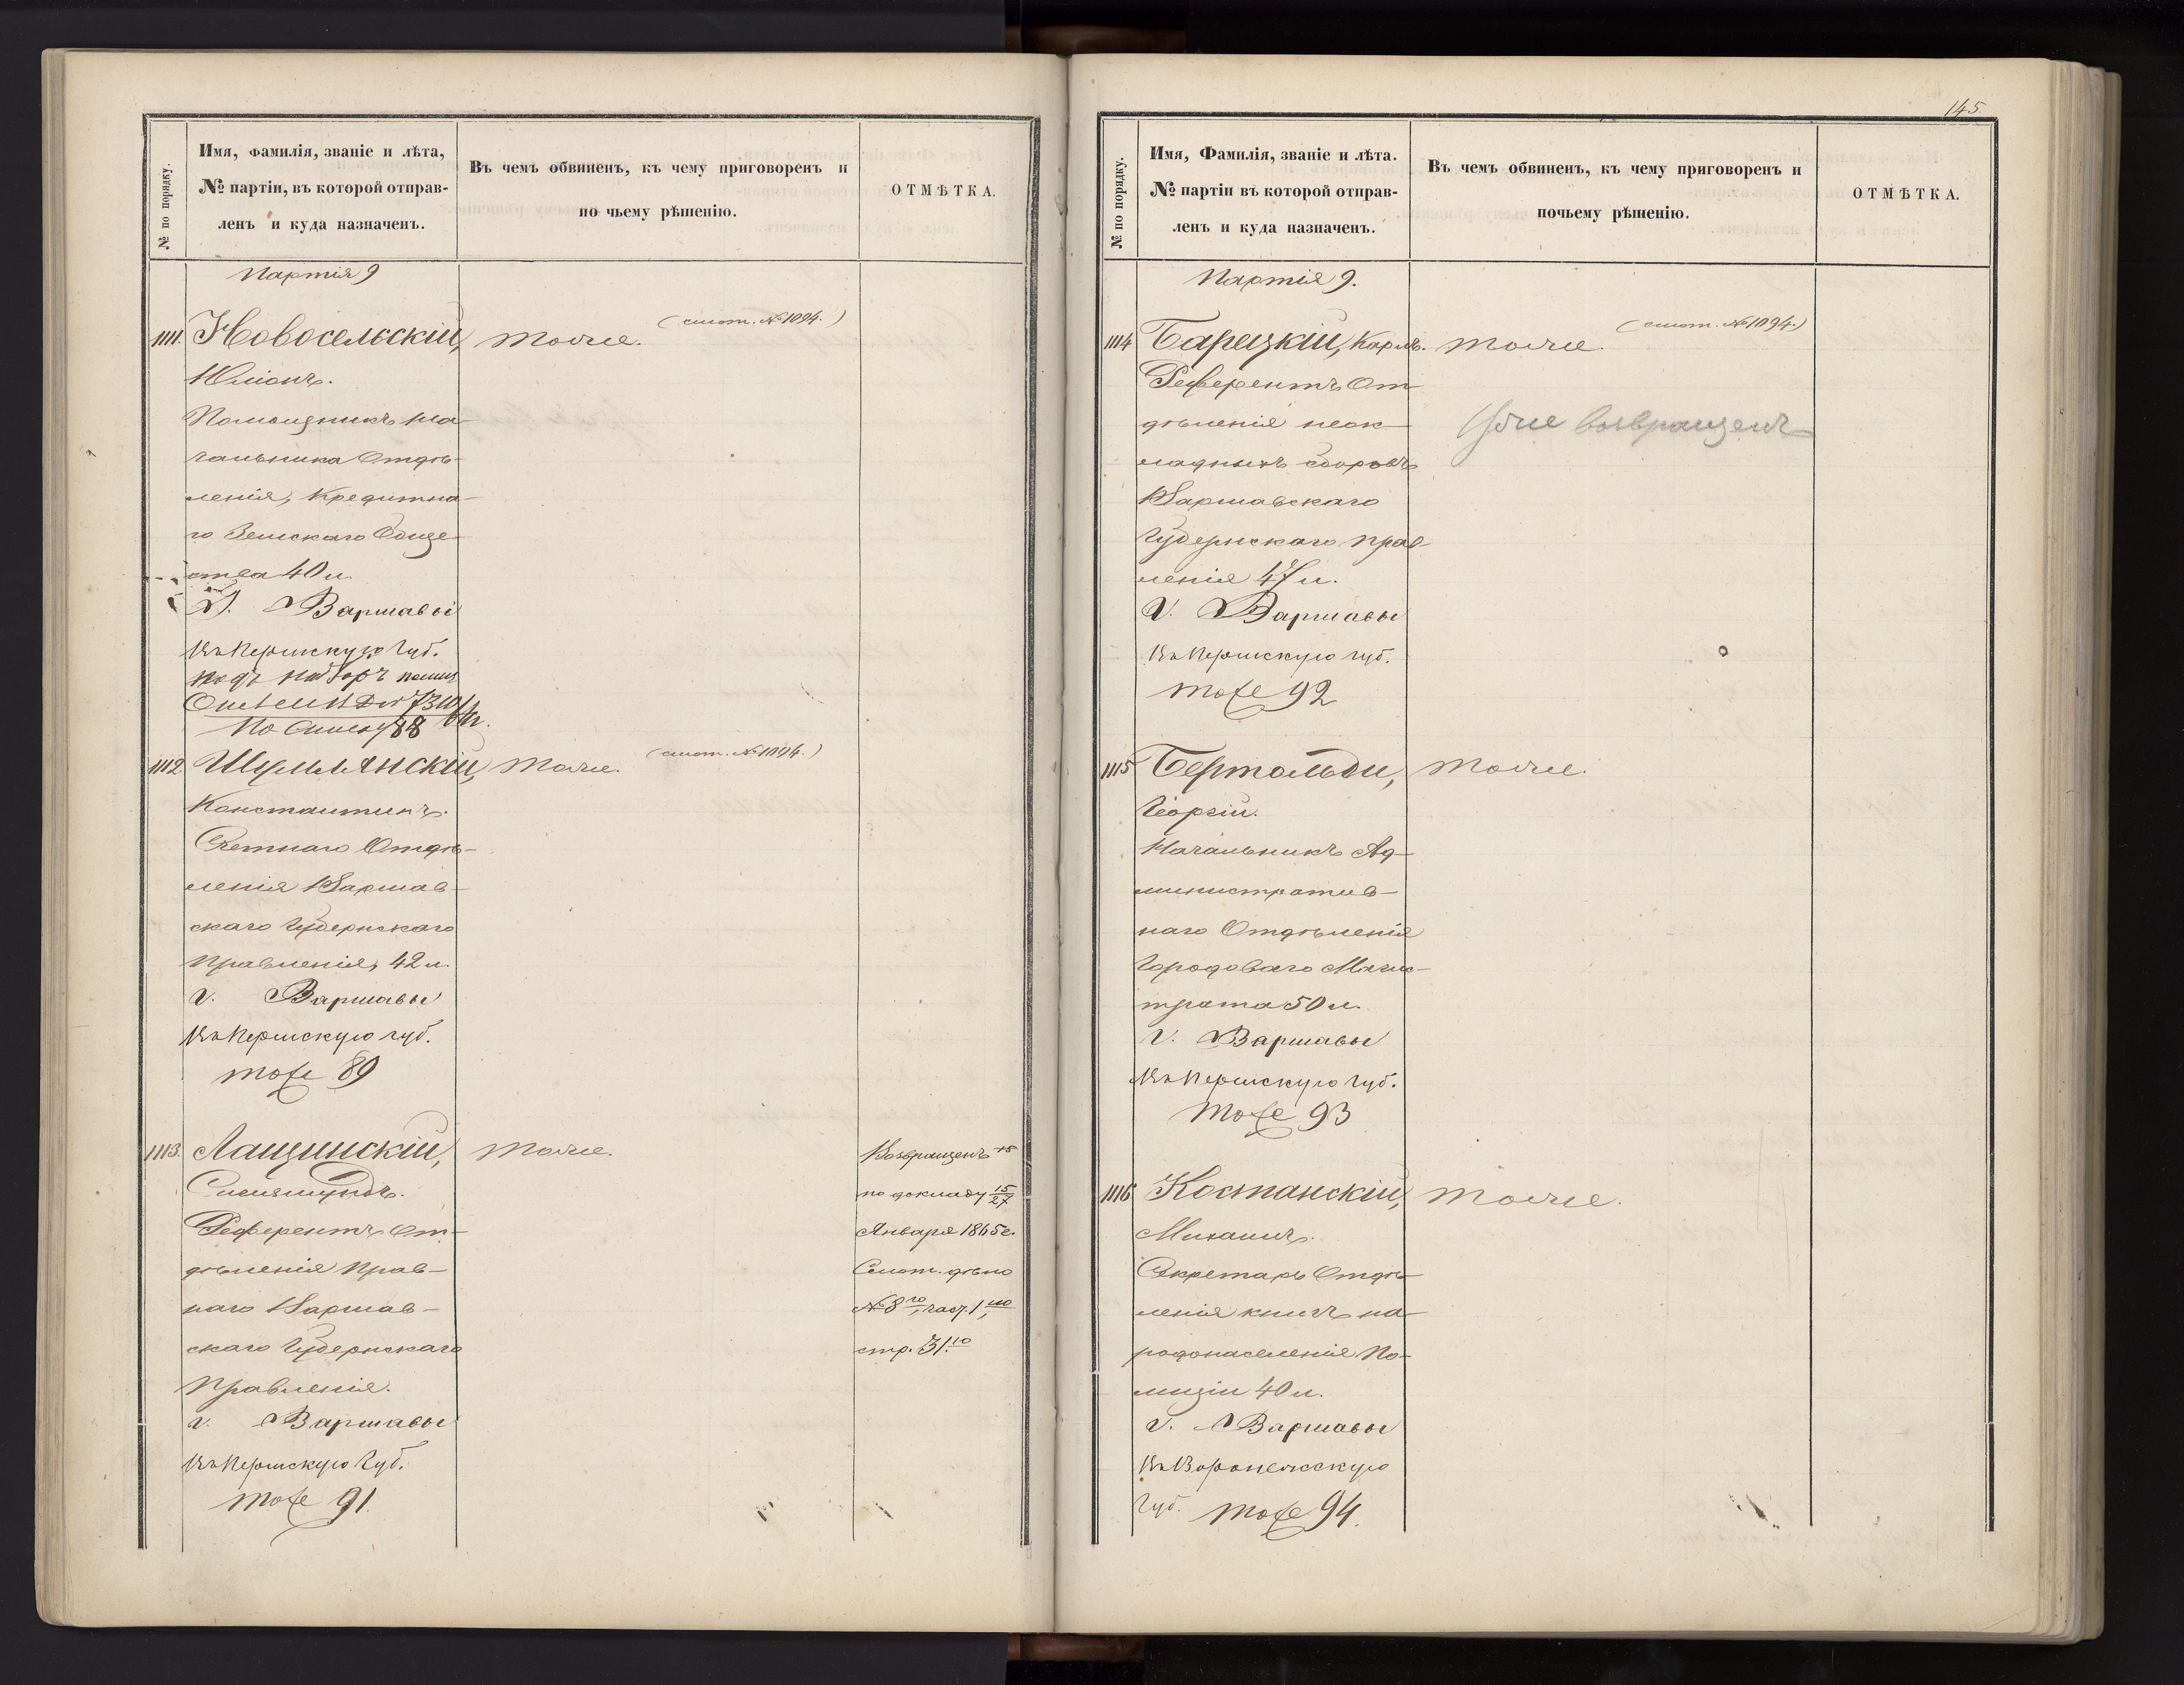 № по порядку.
Имя, фамилія, званіе и лѣта,
№ партіи, въ которой отправ-
ленъ и куда назначенъ.
Въ чемъ обвиненъ, къ чему приговоренъ и
по чьему рѣшенію.
ОТМѢТКА.
Партія 9
1111. Новосельскій, тоже. (смот. № 1094.)
Юліанъ.
Помощникъ на-
чальника Отдѣ-
ленія, Кредитна-
го Земскаго Обще-
ства 40 л.
Г. Варшавы
Въ Пермскую Губ.
подъ надзоръ полиц
По списку 88
1112 Шумлянскій, тоже. (смот. № 1094.)
Константинъ.
Счетнаго Отдѣ-
ленія Варшав-
скаго Губернскаго
Правленія, 42 л.
г. Варшавы
Въ Пермскую губ.
тоже 89
1113. Лащинскій, тоже.
Сигизмундъ.
Референтъ От-
дѣленія Прав-
наго Варшав-
скаго Губернскаго
Правленія.
г. Варшавы
Въ Пермскую Губ.
тоже 91.
Возвращенъ
по докладу 15/27
Января 1865 г.
Смот. дѣло
№ 8го, част. 1ую
стр. 31.ю
145
№ по порядку.
Имя, Фамилія, званіе и лѣта.
№ партіи въ которой отправ-
ленъ и куда назначенъ.
Въ чемъ обвиненъ, къ чему приговоренъ и
почьему рѣшенію.
ОТМѢТКА.
Партія 9.
1114 Барецкій, Карлъ. тоже. (смот. № 1094.)
Референтъ От-
дѣленія неок-
ладныхъ сборовъ
Варшавскаго
Губернскаго прав-
ленія 47 л.
Г. Варшавы
Въ Пермскую губ.
тоже 92
Уже возвращенъ
1115 Бертольди, тоже.
Георгій.
Начальникъ Ад-
министратив-
наго Отдѣленія
Городоваго Магис-
трата 50 л.
Г. Варшавы
Въ Пермскую Губ.
тоже 93
1116 Костанскій, тоже.
Михаилъ.
Секретарь Отдѣ-
ленія книгъ на-
родонаселенія По-
лиціи 40 л.
Г. Варшавы
Въ Воронежскую
Губ. тоже 94.